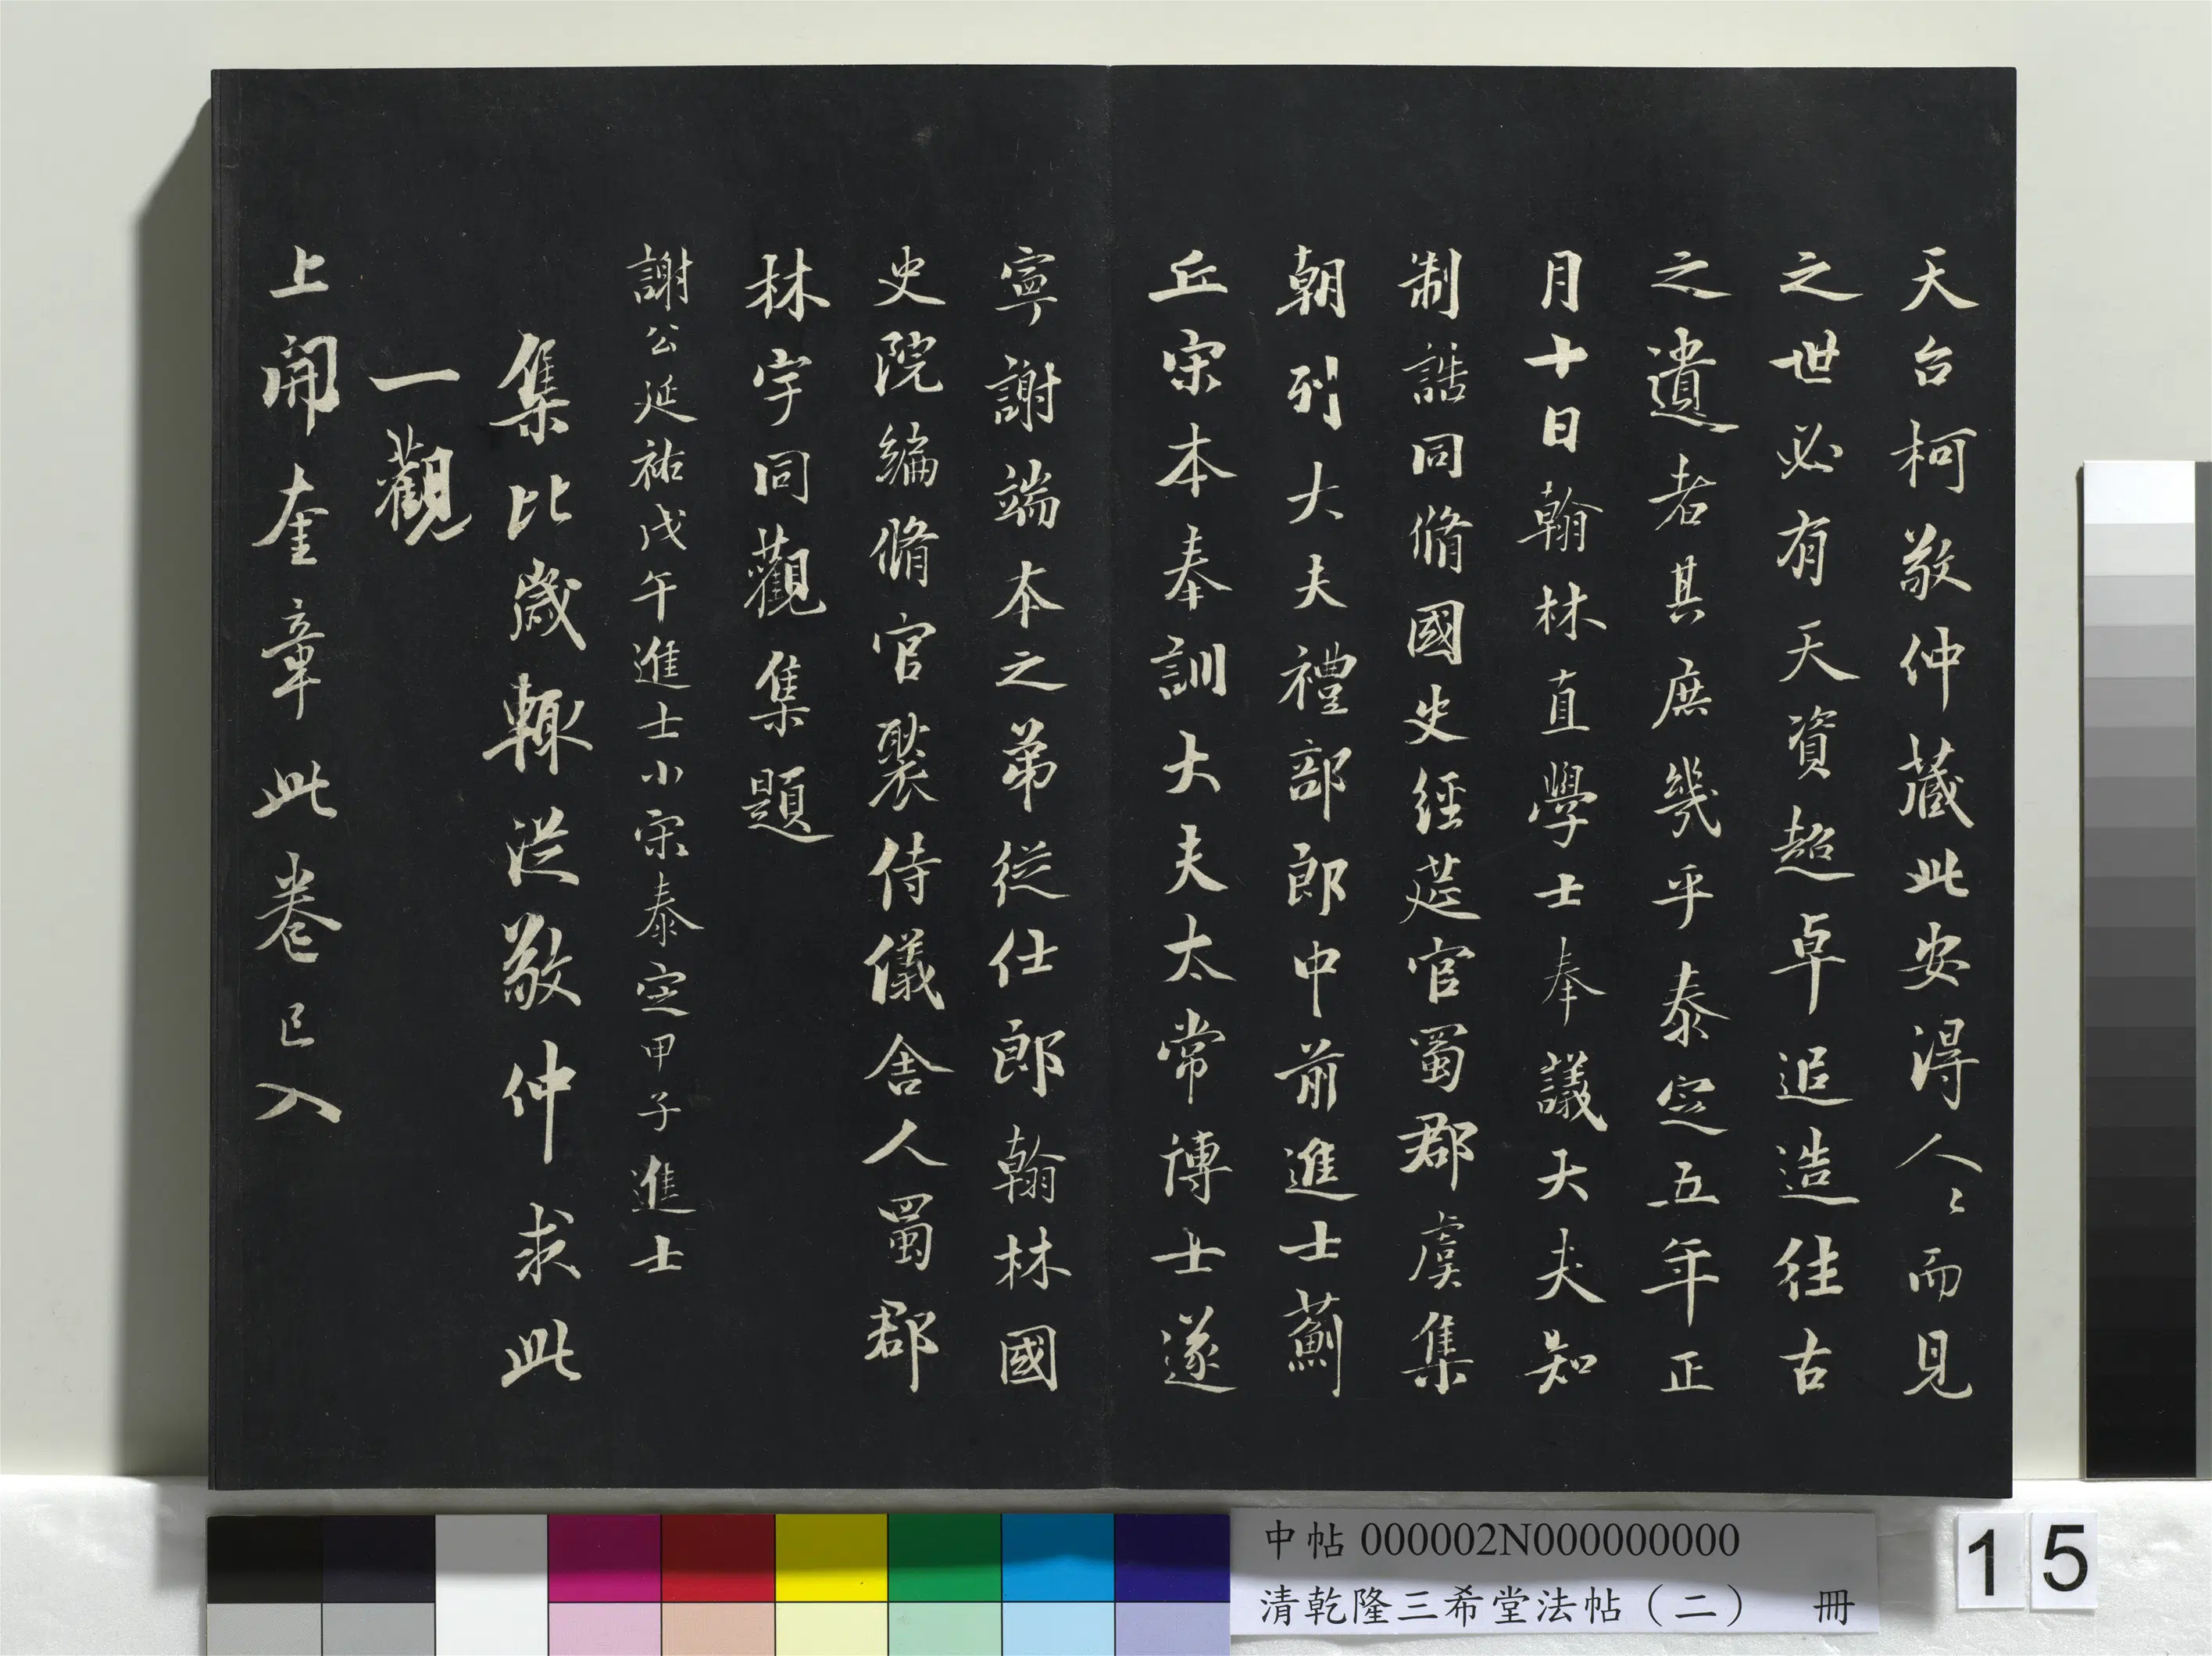 天台柯敬仲藏此安得人〻而見
之世必有天資超卓追造往古
之遺者其庶幾乎泰定五年正
月十日翰林直學士奉議大夫知
制誥同脩國史經筵官蜀郡虞集
朝列大夫禮部郎中前進士薊
丘宋本奉訓大夫太常博士遂
寧謝端本之弟從仕郎翰林國
史院編脩官褧侍儀舍人蜀郡
林宇同觀集題
謝公延祐戊午進士小宋泰定甲子進士
集比歲輙從敬仲求此
一觀
上開奎章此卷已入
中帖 000002N000000000
清乾隆三希堂法帖（二） 冊
15